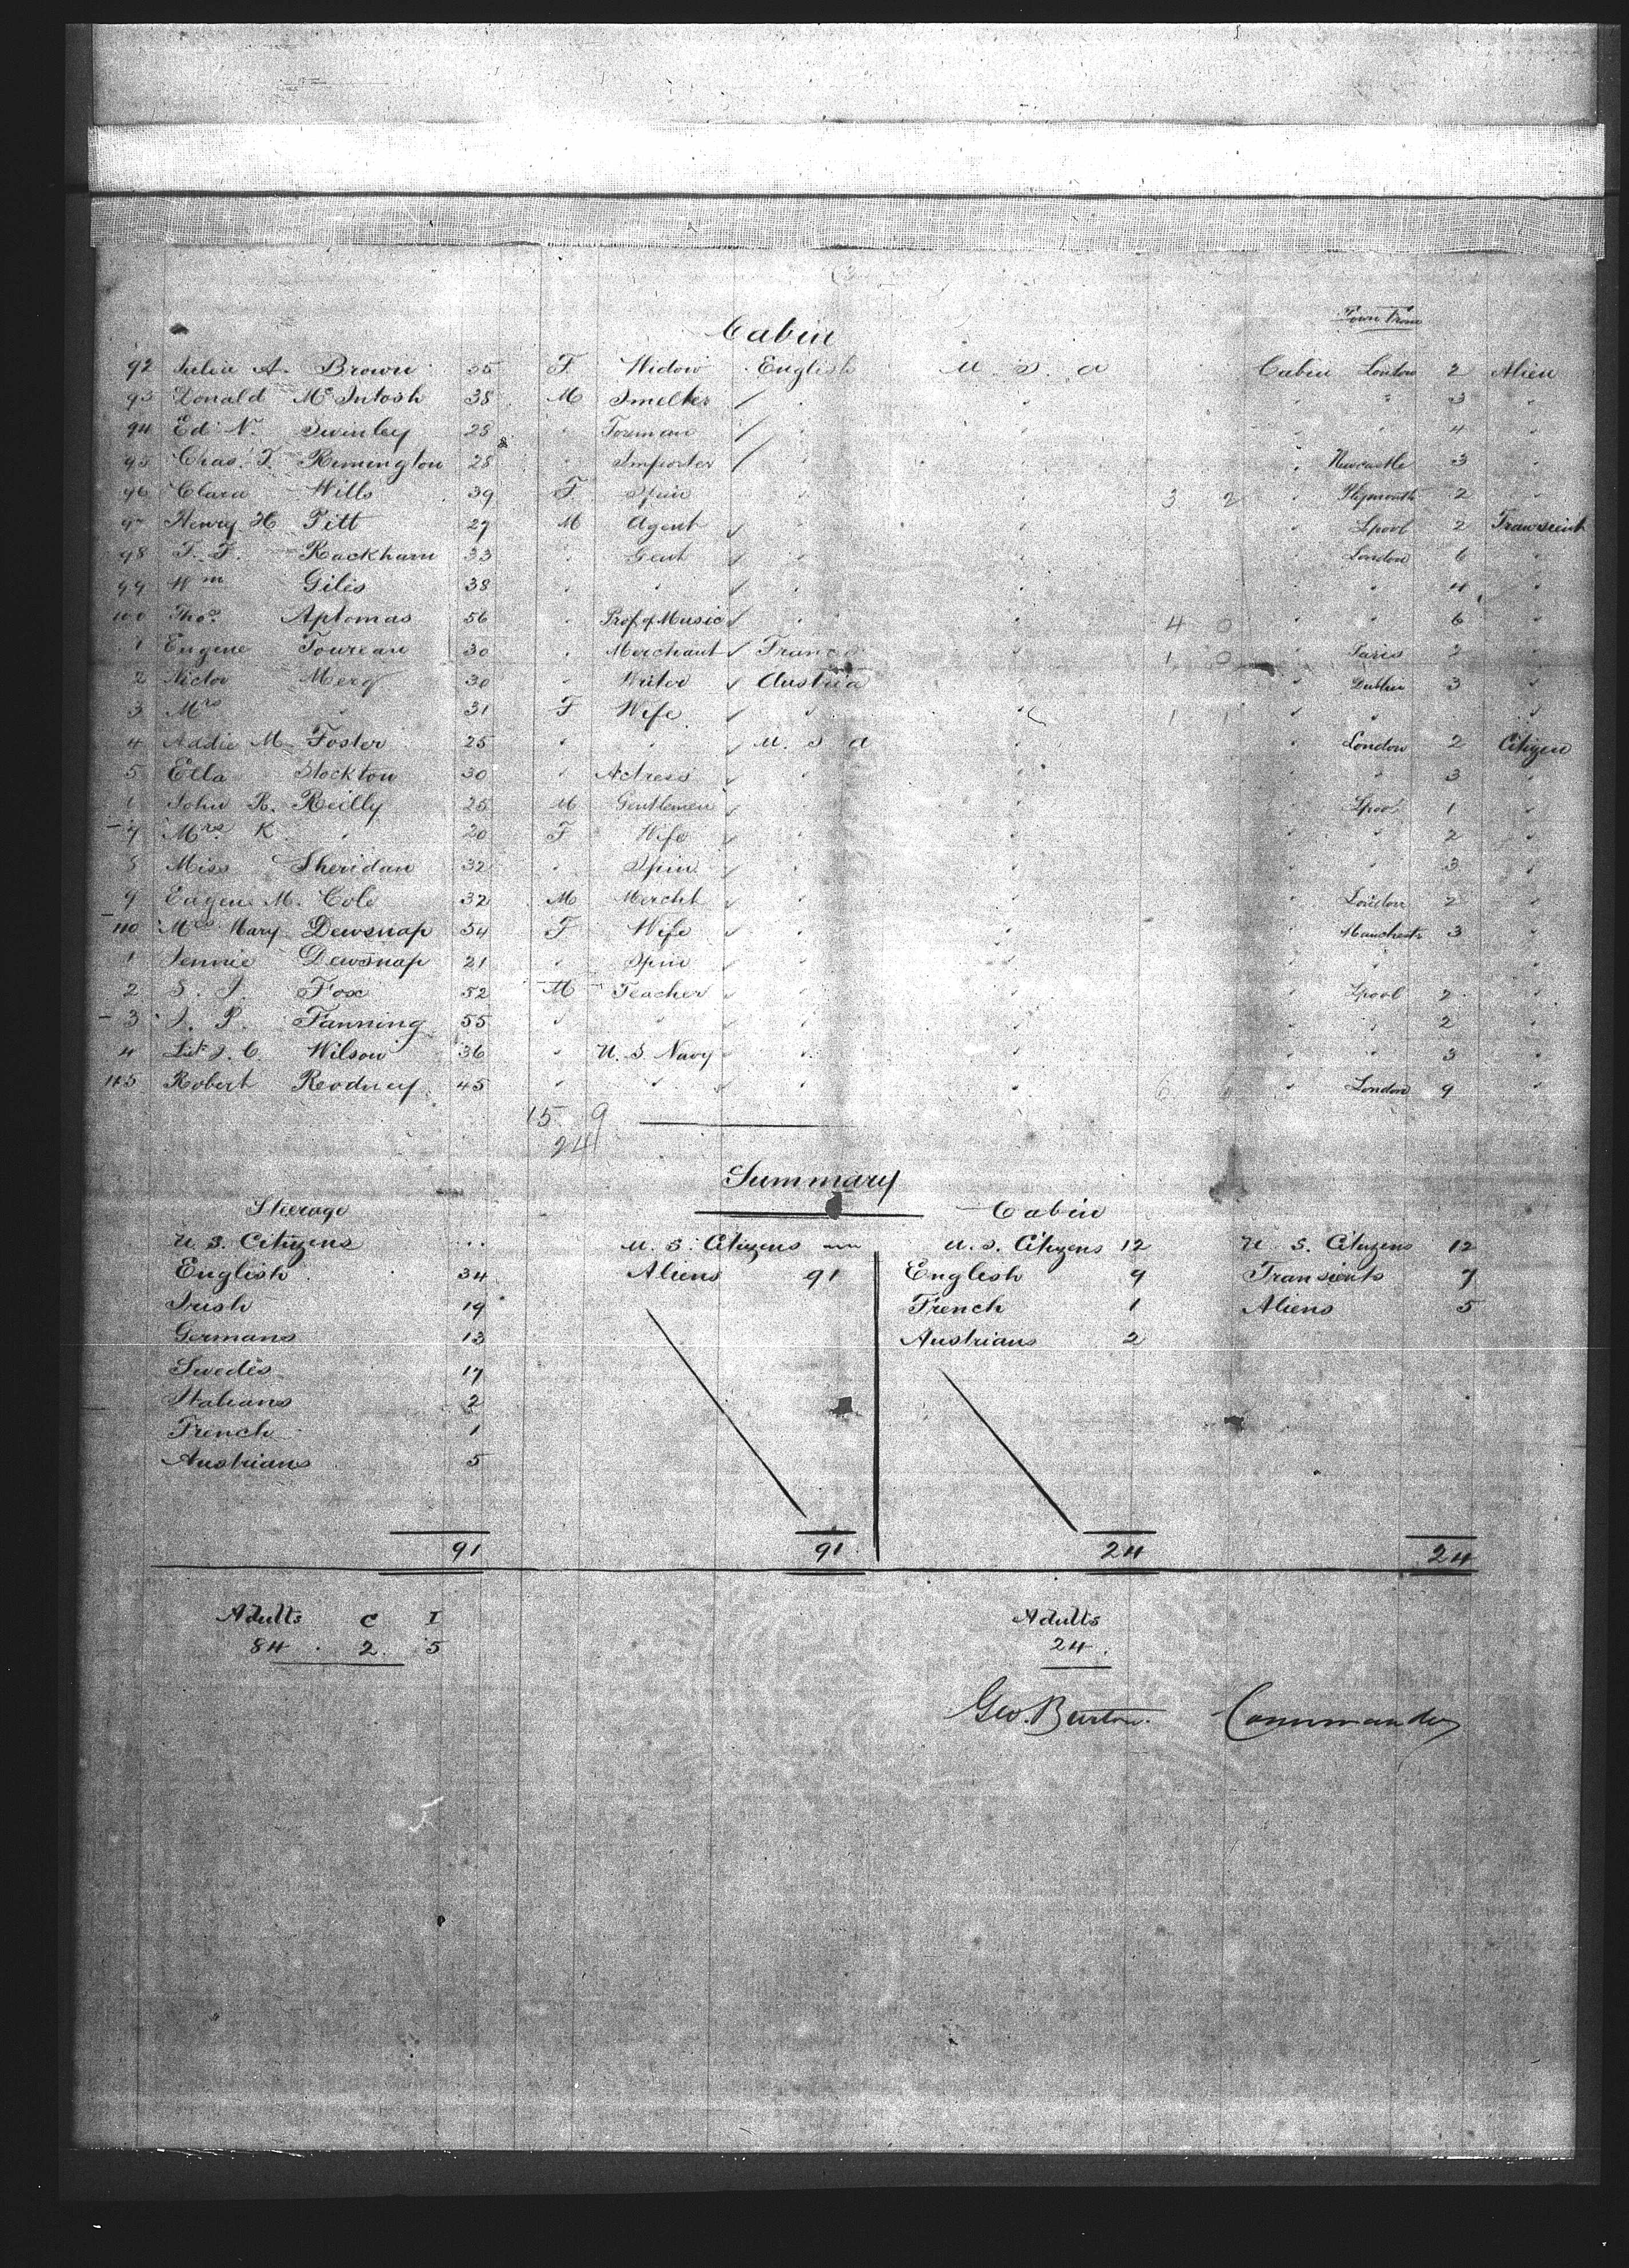 Cabin
Town From
92 Julia A. Brown 35 F Widow English U. S. A Cabin London 2 Alien
93 Donald McIntosh 38 M Smelter / " " " " " 3 "
94 Ed. N. Swinley 28 " Foreman / " " " " 4 "
95 Chas. T. Rimington 28 " Importer / " " " Newcastle 3 "
96 Clara Wills 39 F Spin " " 3 2 " Plymouth 2 "
97 Henry H Pitt 27 M Agent ✓ " " " Lpool 2 Transcient
98 T. F. Rackham 33 " Gent ✓ " " " London 6 "
99 Wm Giles 38 " " ✓ " " " " 4 "
100 Thos. Aptomas 56 " Prof of Music ✓ " " 4 0 " " 6 "
1 Eugene Toureau 30 " Merchant ✓ France " 1 0 " Paris 2 "
2 Victor Merg 30 " Writer ✓ Austria " " Dublin 3 "
3 Mrs " 31 F Wife ✓ " " 1 1 " " " "
4 Addie M Foster 25 " " ✓ U. S A " " London 2 Citizen
5 Ella Stockton 30 " Actress ✓ " " " " 3 "
John R. Reilly 25 M Gentlemen ✓ " " " Lpool 1 "
7 Mrs. K. " 20 F Wife ✓ " " " " 2 "
8 Miss Sheridan 32 " Spin ✓ " " " " 3 "
9 Eugene M. Cole 32 M Mercht ✓ " " " London 2 "
110 Mrs Mary Dewsnap 54 F Wife ✓ " " " Manchestr 3 "
1 Jennie Dewsnap 21 " Spin ✓ " " " " " "
2 S. J. Fox 52 M Teacher ✓ " " " Lpool 2 "
3 J. P. Fanning 55 " " " " " " " 2 "
4 Lut J. C. Wilson 36 " U. S. Navy " " " " " 3 "
115 Robert Rodney 45 " " " ✓ " " 6 " London 9 "
15 9
24
Summary
Steerage Cabin
U. S. Citizens ... U. S. Citizens U. S. Citizens 12 U. S. Citizens 12
English 34 Aliens 91 English 9 Transients 7
Irish 19 French 1 Aliens 5
Germans 13 Austrians 2
Swedes 17
Italians 2
French 1
Austrians 5
91 91 24 24
Adults C I Adults
84 2 5 24
Geo. Burton. Commander